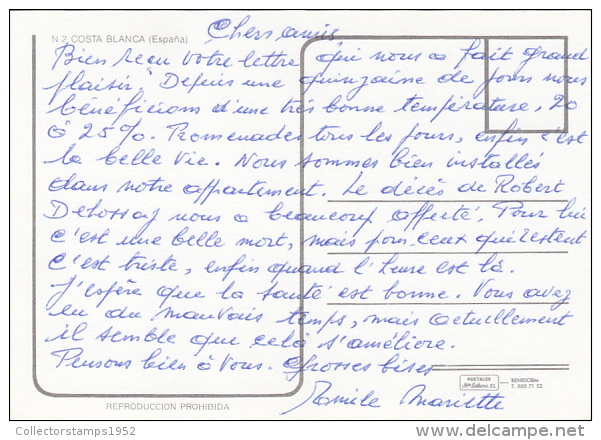 N.2 COSTA BLANCA (España)
Chers amis
Bien reçu votre lettre qui nous a fait grand
plaisir. Depuis une quinzaine de jours nous
bénéficions d'une très bonne température, 20
à 25%. Promenades tous les jours, enfin c'est
la belle vie. Nous sommes bien installés
dans notre appartement. Le décès de Robert
nous a beaucoup affecté. Pour lui
c'est une belle mort, mais pour ceux qui restent
c'est triste, enfin quand l'heure est là.
J'espère que la santé est bonne. Vous avez
eu du mauvais temps, mais actuellement
il semble que celà s'améliore.
Pensons bien à vous. Grosses bises
Emile Mariette
POSTALES
BENIDORM
T. 585 71 52
REPRODUCCION PROHIBIDA
Collectorstamps1952
www.delcampe.net